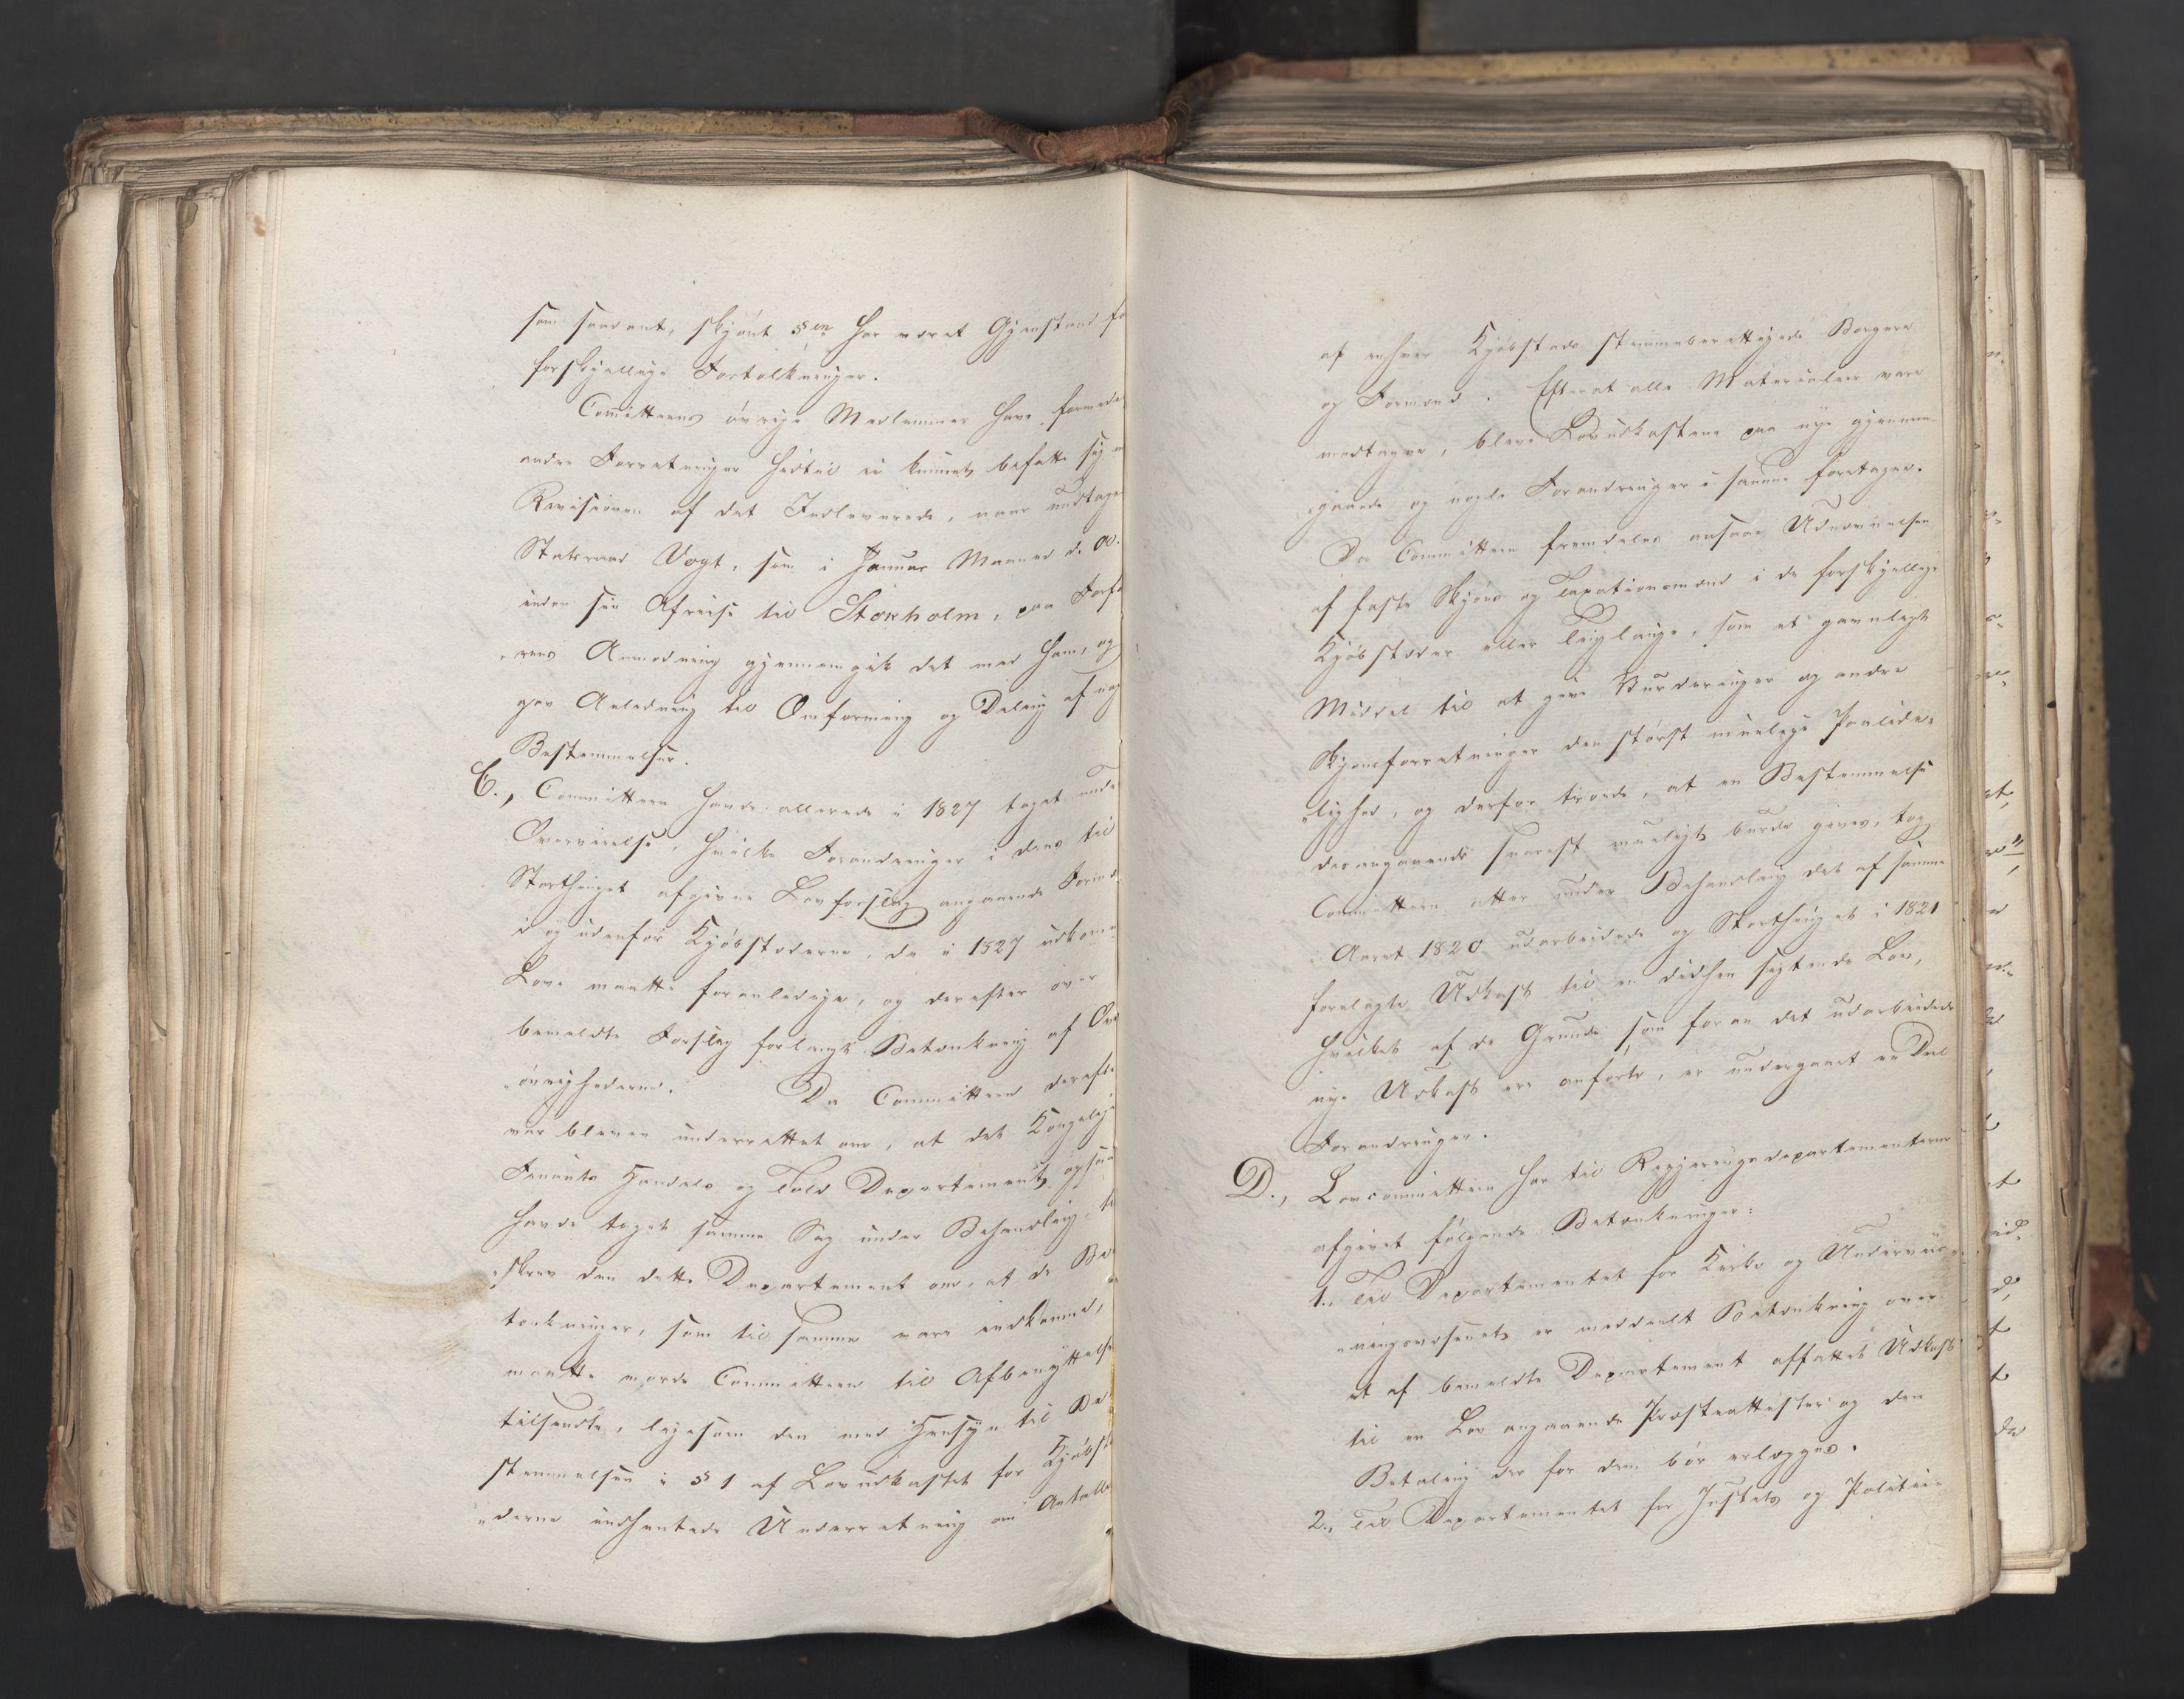 som saadant, skjönt §en har været Gjenstand fo
forskjellige Fortolkninger.
Comitteens övrige Medlemmer have formede
andre Forretninger hidtil ei kunnet befatte sig m
Revisionen af det Indleverede, naar undtage
Statsraad Vogt, som i Januar Maaned d. A.
inden sin Afreise til Stokholm, paa Forf
rens Anmodning gjennemgik det med ham, og
gav Anledning til Omforming og Deling af nog
Bestemmelser.
C., Committeen havde allerede i 1827 taget unde
Overveielse, hvilke Forandringer i dens til
Storthinget afgivne Lovforslag angaaende Formd
i og udenfor Kjöbstæderne, de i 1827 udkomne
Love maatte foranledige, og derefter over
bemeldte Forslag forlangt Betænkning af Ov
övrighederne. Da Committeen derefte
var bleven underrettet om, at det Kongelige
Finants Handels og Told Departement ogsaa
havde taget samme Sag under Behandling, ti
skrev den dette Departement om, at de Be
tænkninger, som til samme vare indkomne,
maatte vorde Committeen til Afbenyttelse
tilsendte, ligesom den med Hensyn til Be
stemmelsen i § 1 af Lovudkastet for Kjöbst
derne indhentede Underretning om Antalle
af enhver Kjöbstads stemmeberettigede Borgere
og Formænd. Efterat alle Materialier vare
modtagne, bleve Lovudkastene paa nye gjennem-
gaaede og nogle Forandringer i samme foretagne.
Da Committeen fremdeles ansaae Udnævnelsen
af faste Skjöns og Taxationsmænd i de forskjellige
Kjöbstæder eller Tinglauge, som et gavnligt
Middel til at give Vurderinger og andre
Skjönsforretninger den störst muelige Paalide-
lighed, og derfor troede, at en Bestemmelse
desangaaende snarest mueligt burde gives, tog
Committeen atter under Behandling det af samme
i Aaret 1820 udarbeidede og Storthinget i 1821
forelagte Udkast til en didhen sigtende Lov,
hvilket af de Grunde som foran det udarbeidede
nye Udkast ere anförte, er undergaaet en Deel
Forandringer.
D., Lovcommitteen har til Regjeringsdepartementerne
afgivet fölgende Betænkninger:
1., Til Departementet for Kirke og Underviis-
ningsvæsenet er meddeelt Betænkning over
et af bemeldte Departement affattet Udkast
til en Lov angaaende Præsteattester og den
Betaling der for dem bör erlægges.
2., Til Departementet for Justits og Politie-